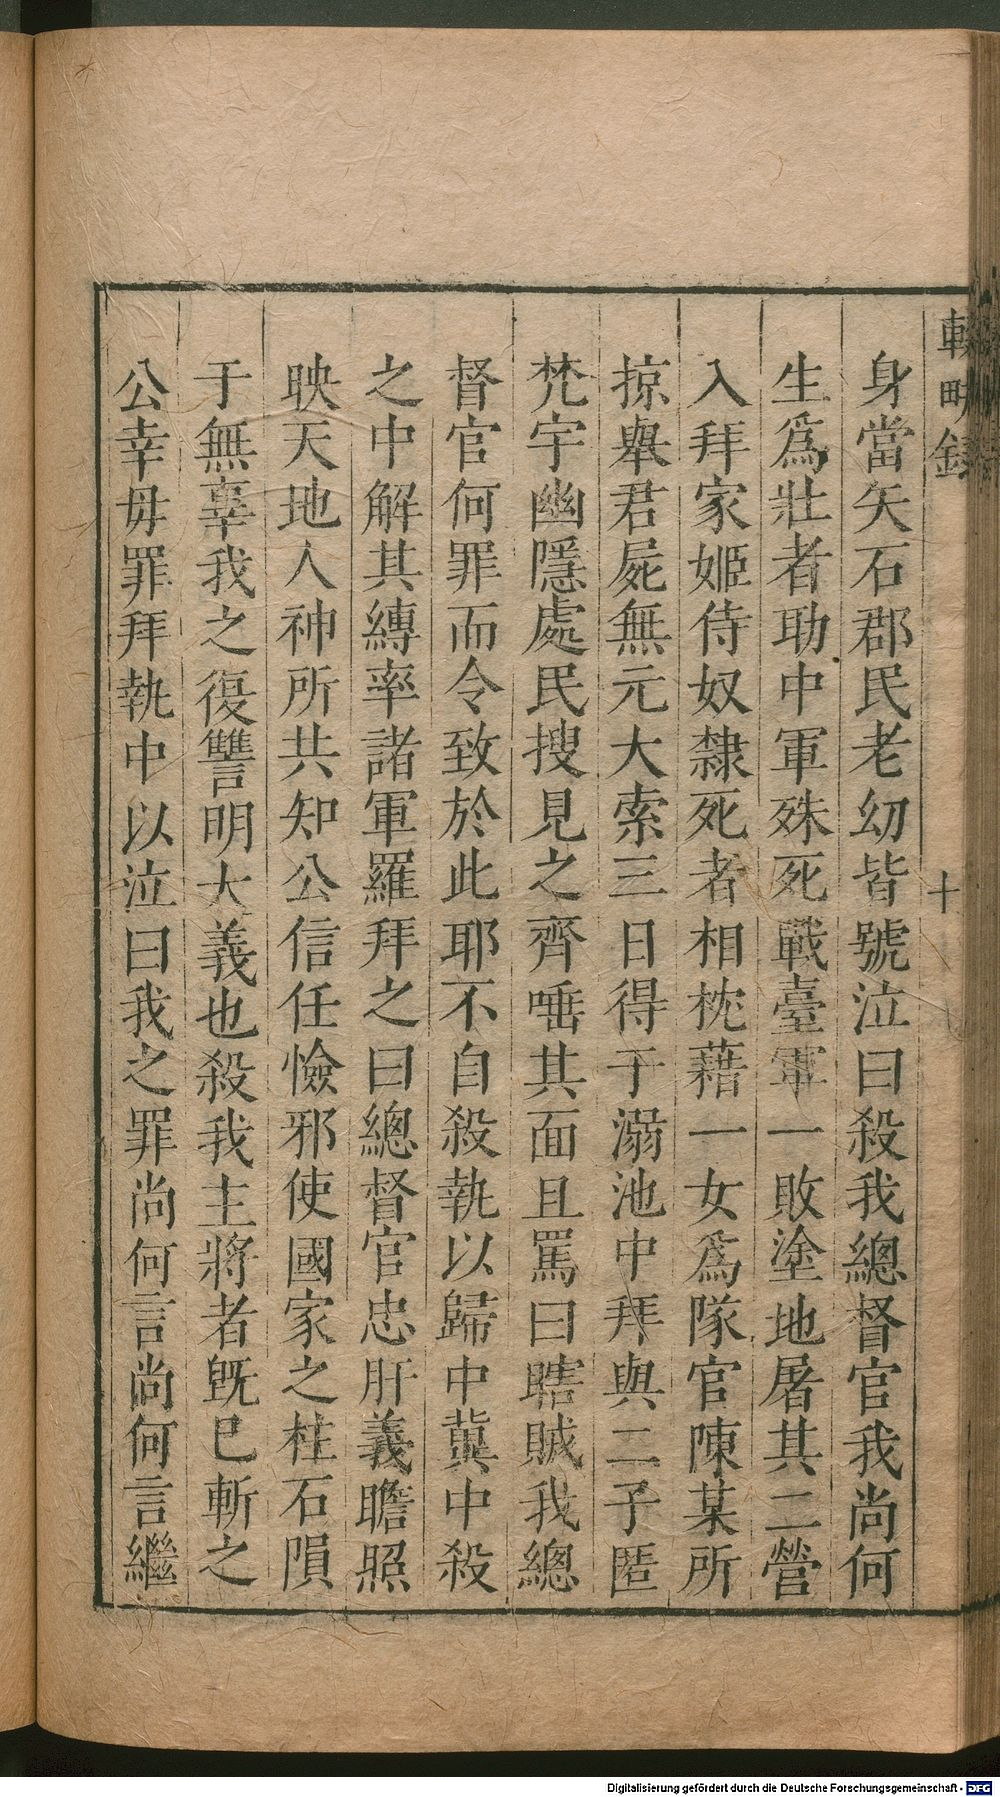 十
身當矢石郡民老幼皆號泣曰殺我總督官我尚何
生爲壯者助中軍殊死戰臺軍一敗塗地屠其二營
入拜家姬侍奴隸死者相枕藉一女爲隊官陳某所
掠舉君屍無元大索三日得于溺池中拜與二子匿
梵宇幽隱處民搜見之齊唾其面且罵曰瞎賊我總
督官何罪而令致於此耶不自殺執以歸中冀中殺
之中解其縛率諸軍羅拜之曰總督官忠肝義瞻照
映天地人神所共知公信任憸邪使國家之柱石隕
于無辜我之復讐明大義也殺我主將者旣已斬之
公幸毋罪拜執中以泣曰我之罪尚何言尚何言繼
Digitalisierung gefördert durch die Deutsche Forschungsgemeinschaft - DFG